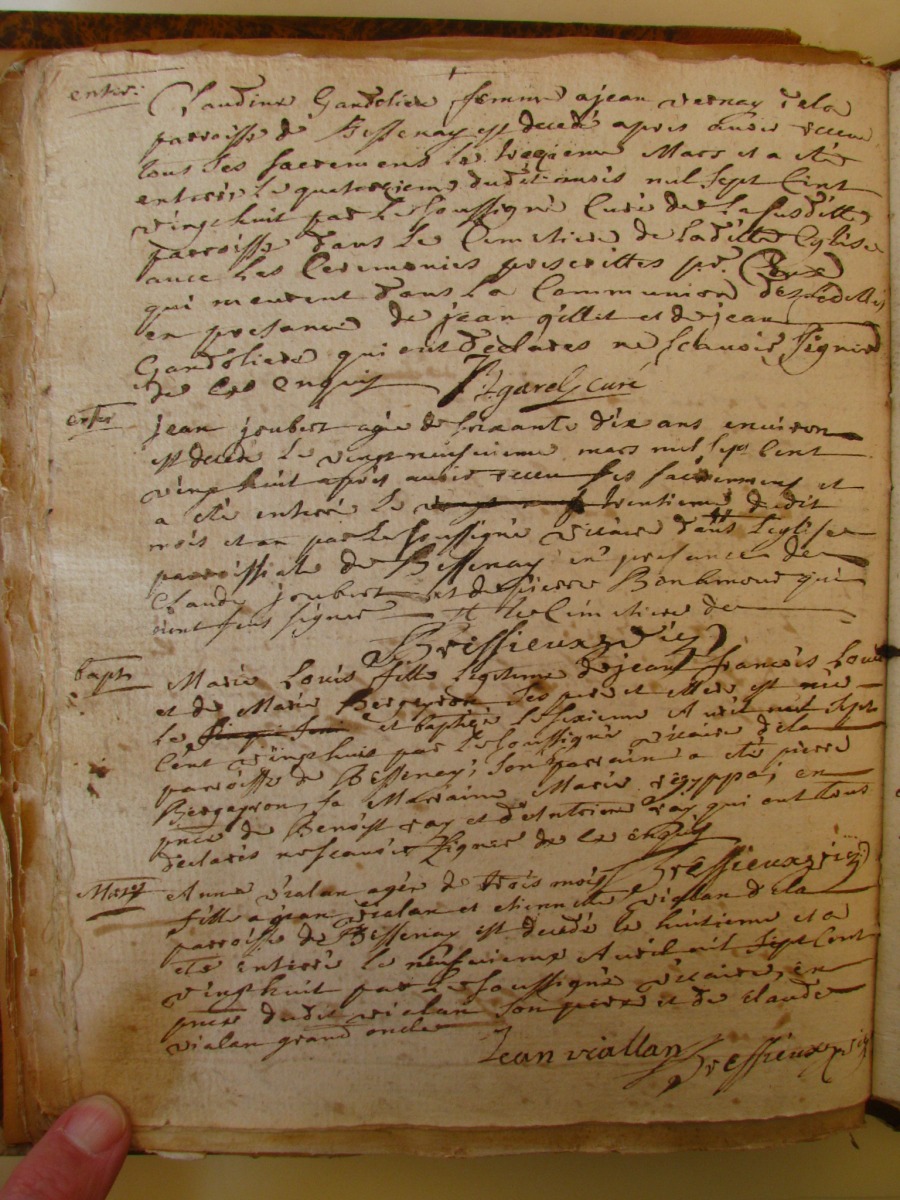 enter:
Claudine Gandoliere femme a jean vernay de la
parroisse de Bessenay est decedé apres avoir receu
tous ses sacremens le treziême Mars et a eté
enterée le quatorzieme dudit mois mil sept Cent
vingt huit par le soussigné Curé de la susditte
parroisse dans le Cemetiere de laditte Eglise
avec les Ceremonies prescrittes pr. Ceux
qui meurent dans la Communion des fidelles
en presance de jean gillet et de jean
Gandoliere qui ont declares ne sçavoir signer
de ce enquis Agarel curé
enter
jean joubert agé de soixante dix ans environ
est decedé le vingtneufvieme mars mil sept Cent
vingt huit après avoir receu ses sacremens et
a eté enterré le trentieme dudit
mois et an par le soussigné vicaire dans l'eglise
parroissiale de Bessenay en presance de
Claude joubert et de pierre qui
n'ont sceus signer le Cimetiere de
Bressieux vic
bapt
Marie Louis fille legitime de jean françois Louis
et de Marie Bergeyron ses pere et Mere est née
le et baptisée le sixieme Avril mil sept
Cent vingthuit par le soussigné vicaire de la
parroisse de Bessenay; son parrain a eté pierre
Bergeyron, sa Marraine Marie en
pnce de Benoist ray et d'Antoine ray qui ont tous
declarés ne scavoir signer de ce enquis
Bressieux vic
Mort
Anne vialan agée de trois mois
fille a jean vialan et etiennette vialan de la
parroisse de Bessenay est decedé le huitieme et a
eté enterrée le neufvieme Avril mil sept Cent
vingthuit par le soussigné vicaire, en
pnce dudit vialan son pere et de claude
vialan grand oncle
Jean viallan Bressieux vic